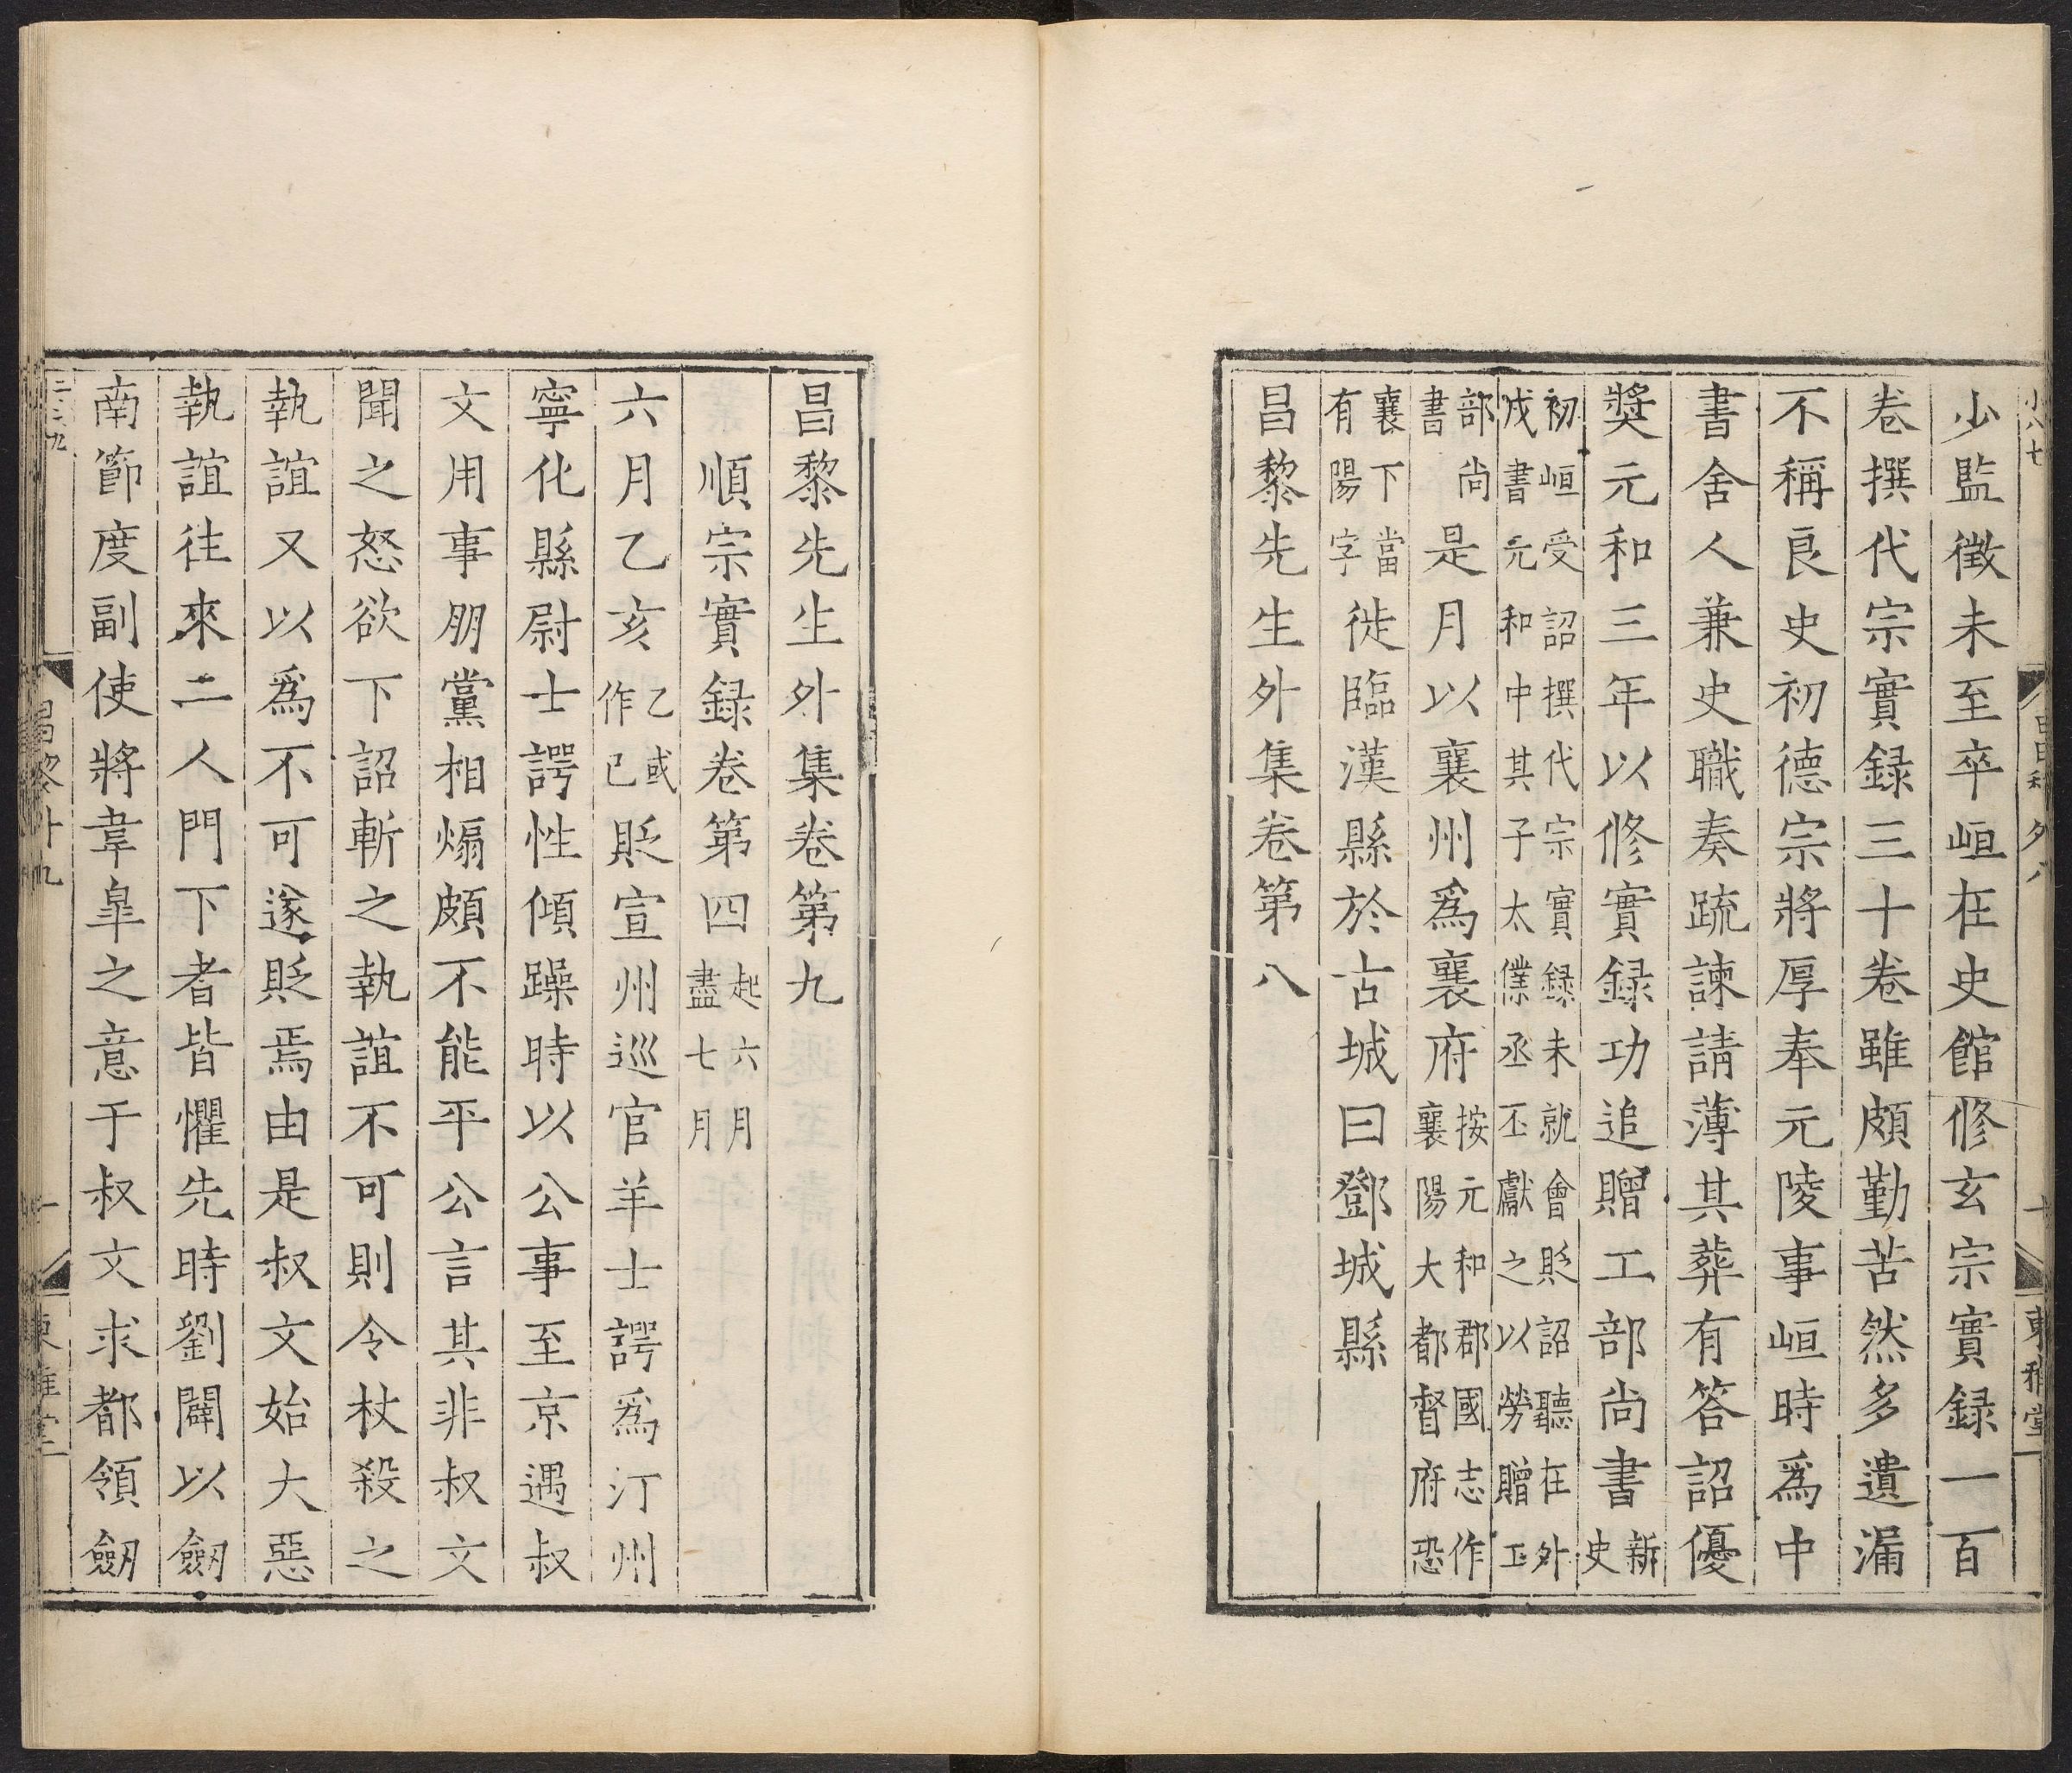 少監徵未至卒峘在史館修玄宗實録一百
卷撰代宗實録三十卷雖頗勤苦然多遺漏
不稱良史初德宗將厚奉元陵事峘時爲中
書舍人兼史職奏疏諫請薄其葬有答詔優
奬元和三年以修實録功追贈工部尚書新史
初峘受詔撰代宗實録未就會貶詔聽在外
成書元和中其子太僕丞丕獻之以勞贈工
部尚書是月以襄州爲襄府按元和郡國志作襄陽大都督府恐
襄下當有陽字徙臨漢縣於古城曰鄧城縣
昌黎先生外集卷第八
昌黎先生外集卷第九
順宗實録卷第四起六月盡七月
六月乙亥乙或作已貶宣州巡官羊士諤爲汀州
寧化縣尉士諤性傾躁時以公事至京遇叔
文用事朋黨相煽頗不能平公言其非叔文
聞之怒欲下詔斬之執誼不可則令杖殺之
執誼又以爲不可遂貶焉由是叔文始大惡
執誼往來二人門下者皆懼先時劉闢以劒
南節度副使將韋皐之意于叔文求都領劒
昌黎外九
東雅堂